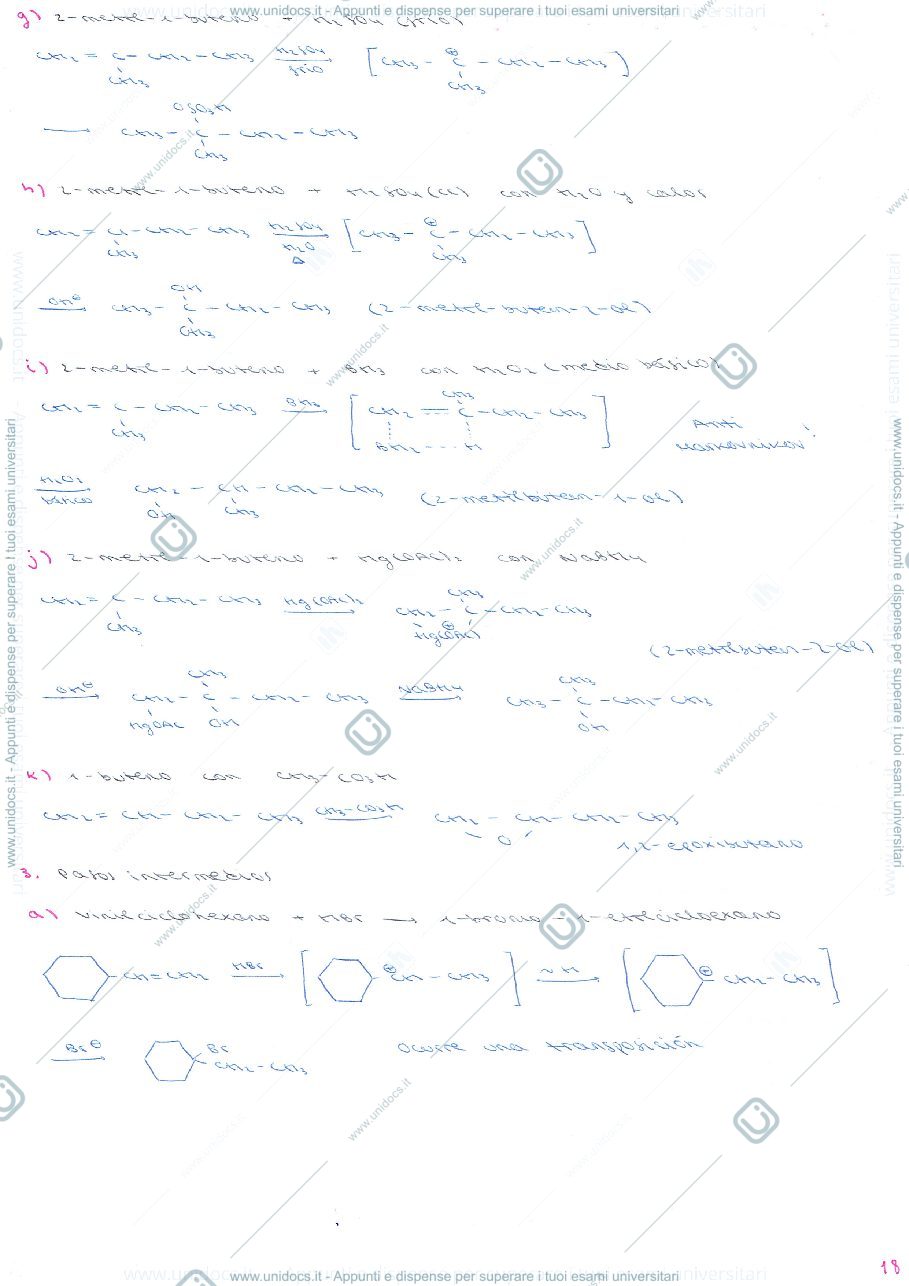 www.unidocs.it - Appunti e dispense per superare i tuoi esami universitari
g) 2-metil-1-buteno + H2SO4 (frío)
CH2 = C - CH2 - CH3 H2SO4 frío [CH3 - C⊕ - CH2 - CH3]
CH3 CH3
OSO3H
→ CH3 - C - CH2 - CH3
CH3
h) 2-metil-1-buteno + H2SO4 (cc) con H2O y calor
CH2 = C - CH2 - CH3 H2SO4 H2O Δ [CH3 - C⊕ - CH2 - CH3]
CH3 CH3
OH
OH⊖ → CH3 - C - CH2 - CH3 (2-metil-butan-2-ol)
CH3
i) 2-metil-1-buteno + BH3 con H2O2 (medio básico)
CH3
CH2 = C - CH2 - CH3 BH3 → [CH2 = C - CH2 - CH3] Anti
CH3 BH2 --- H Markovnikov
H2O2 básico → CH2 - CH - CH2 - CH3 (2-metilbutan-1-ol)
OH CH3
j) 2-metil-1-buteno + Hg(OAc)2 con NaBH4
CH3
CH2 = C - CH2 - CH3 Hg(OAc)2 → CH2 - C - CH2 - CH3
CH3 Hg(OAc) ⊕
(2-metilbutan-2-ol)
CH3 CH3
OH⊖ → CH2 - C - CH2 - CH3 NaBH4 → CH3 - C - CH2 - CH3
HgOAc OH OH
k) 1-buteno con CH3-CO3H
CH2 = CH - CH2 - CH3 CH3-CO3H → CH2 - CH - CH2 - CH3
O
1,2-epoxibutano
3. Pasos intermedios
a) vinilciclohexano + HBr → 1-bromo-1-etilcicloexano
CH=CH2 HBr → [⊕CH - CH3] ~H → [⊕ CH2 - CH3]
Br⊖ → Br Ocurre una transposición
CH2 - CH3
18
www.unidocs.it - Appunti e dispense per superare i tuoi esami universitari